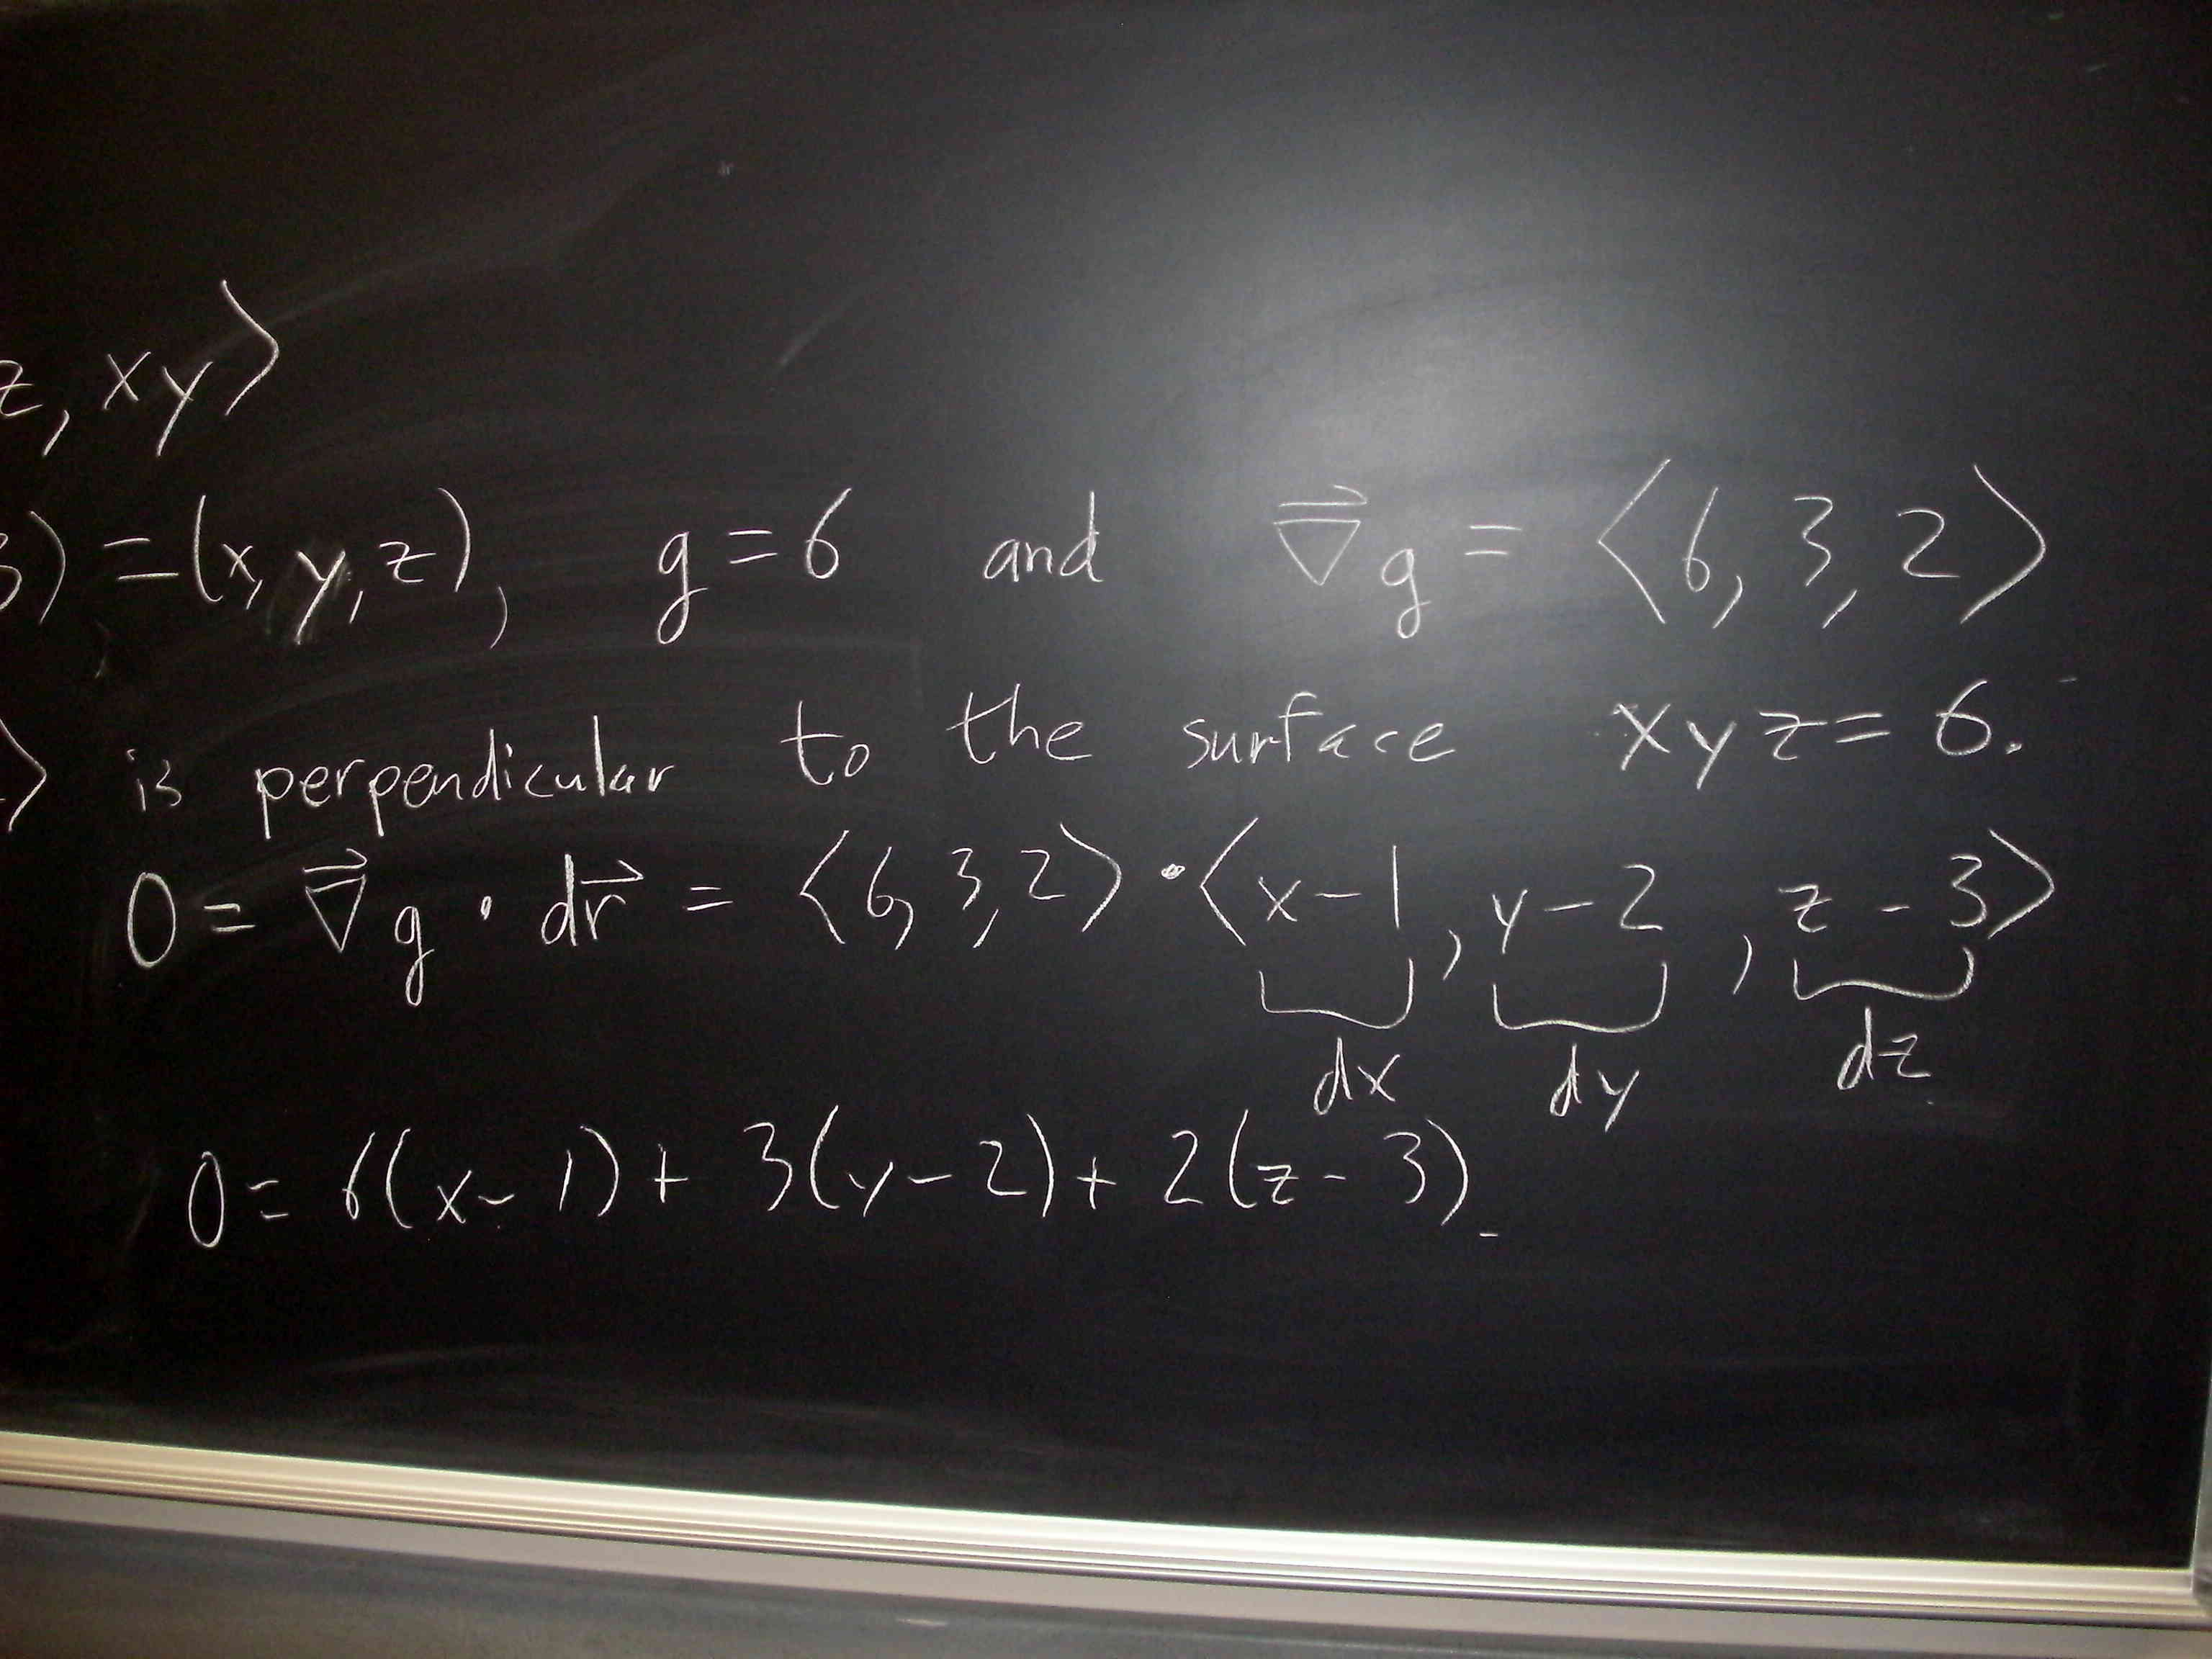 z, xy⟩
3) = (x, y, z), g = 6 and ∇⃗g = ⟨6, 3, 2⟩
⟩ is perpendicular to the surface xyz = 6.
0 = ∇⃗g · dr⃗ = ⟨6, 3, 2⟩ · ⟨x-1, y-2, z-3⟩
dx dy dz
0 = 6(x-1) + 3(y-2) + 2(z-3).